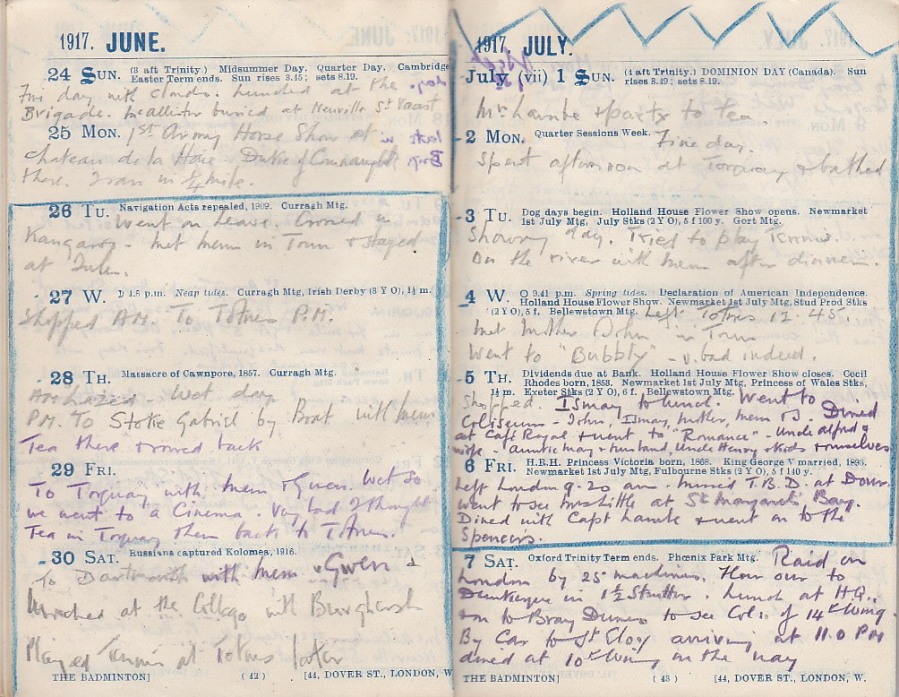 1917. JUNE.
24 SUN. (3 aft Trinity.) Midsummer Day. Quarter Day. Cambridge
Easter Term ends. Sun rises 3.45; sets 8.19.
Fine day with clouds. Lunched at the
Brigade. McAllister buried at Neuville St Vaast
25 MON. 1st Army Horse Show at
Chateau de la Haie Duke of Connaught
there. I ran in ¼ mile.
26 TU. Navigation Acts repealed, 1909. Curragh Mtg.
Went on leave. Crossed in
Kangaroo - met Mem in Town & stayed
at
27 W. 4.8 p.m. Neap tides. Curragh Mtg, Irish Derby (3 Y O), 1½ m.
Shopped A.M. To Totnes P.M.
28 TH. Massacre of Cawnpore, 1857. Curragh Mtg.
AM Lazed - Wet day
P.M. To Stoke Gabriel by Boat with Mem
Tea there & rowed back
29 FRI.
To Torquay with Mem & Gwen. Wet so
we went to a Cinema. Very bad I thought
Tea in Torquay then back to Totnes.
30 SAT. Russians captured Kolomea, 1916.
To Dartmouth with Mem & Gwen &
lunched at the College with Burghersh
Played Tennis at Totnes later
THE BADMINTON] (42) [44, DOVER ST., LONDON, W.
1917. JULY.
July (vii) 1 SUN. (4 aft Trinity.) DOMINION DAY (Canada). Sun
rises 3.19; sets 8.19.
Mrs Lambe & party to tea.
2 MON. Quarter Sessions Week. Fine day.
Spent afternoon at Torquay & bathed
3 TU. Dog days begin. Holland House Flower Show opens. Newmarket
1st July Mtg, July Stks (2 Y O), 5 f 100 y. Gort Mtg.
Showery day. Tried to play Tennis.
On the river with Mem after dinner.
4 W. 9.41 p.m. Spring tides. Declaration of American Independence.
Holland House Flower Show. Newmarket 1st July Mtg, Stud Prod Stks
(2 Y O), 5 f. Bellewstown Mtg. Left Totnes 12.45.
Met Mother & John in Town
Went to "Bubbly" - v. bad indeed.
5 TH. Dividends due at Bank. Holland House Flower Show closes. Cecil
Rhodes born, 1853. Newmarket 1st July Mtg, Princess of Wales Stks,
1½ m. Exeter Stks (2 Y O), 6 f. Bellewstown Mtg.
Shopped. Ismay to lunch. Went to
Coliseum - John, Ismay, Mother, Mem & I. Dined
at Café Royal & went to "Romance" - Uncle Alfred &
wife - Auntie May & husband, Uncle Henry & & ourselves
6 FRI. H.R.H. Princess Victoria born, 1868. King George V married, 1893.
Newmarket 1st July Mtg, Fulbourne Stks (3 Y O), 5 f 140 y.
Left London 9.20 am. Missed T.B.D. at Dover
Went to see Mrs Little at St Margaret's Bay.
Dined with Capt Lambe & went on to the
Spencers.
7 SAT. Oxford Trinity Term ends. Phenix Park Mtg. Raid on
London by 25 machines. Flew over to
Dunkerque in 1½ Strutter. Lunch at HQ.,
& on to Bray Dunes to see Col. of 14th Wing
By Car to St Eloy arriving at 11.0 PM
dined at 10th Wing on the way
THE BADMINTON] (43) [44, DOVER ST., LONDON, W.